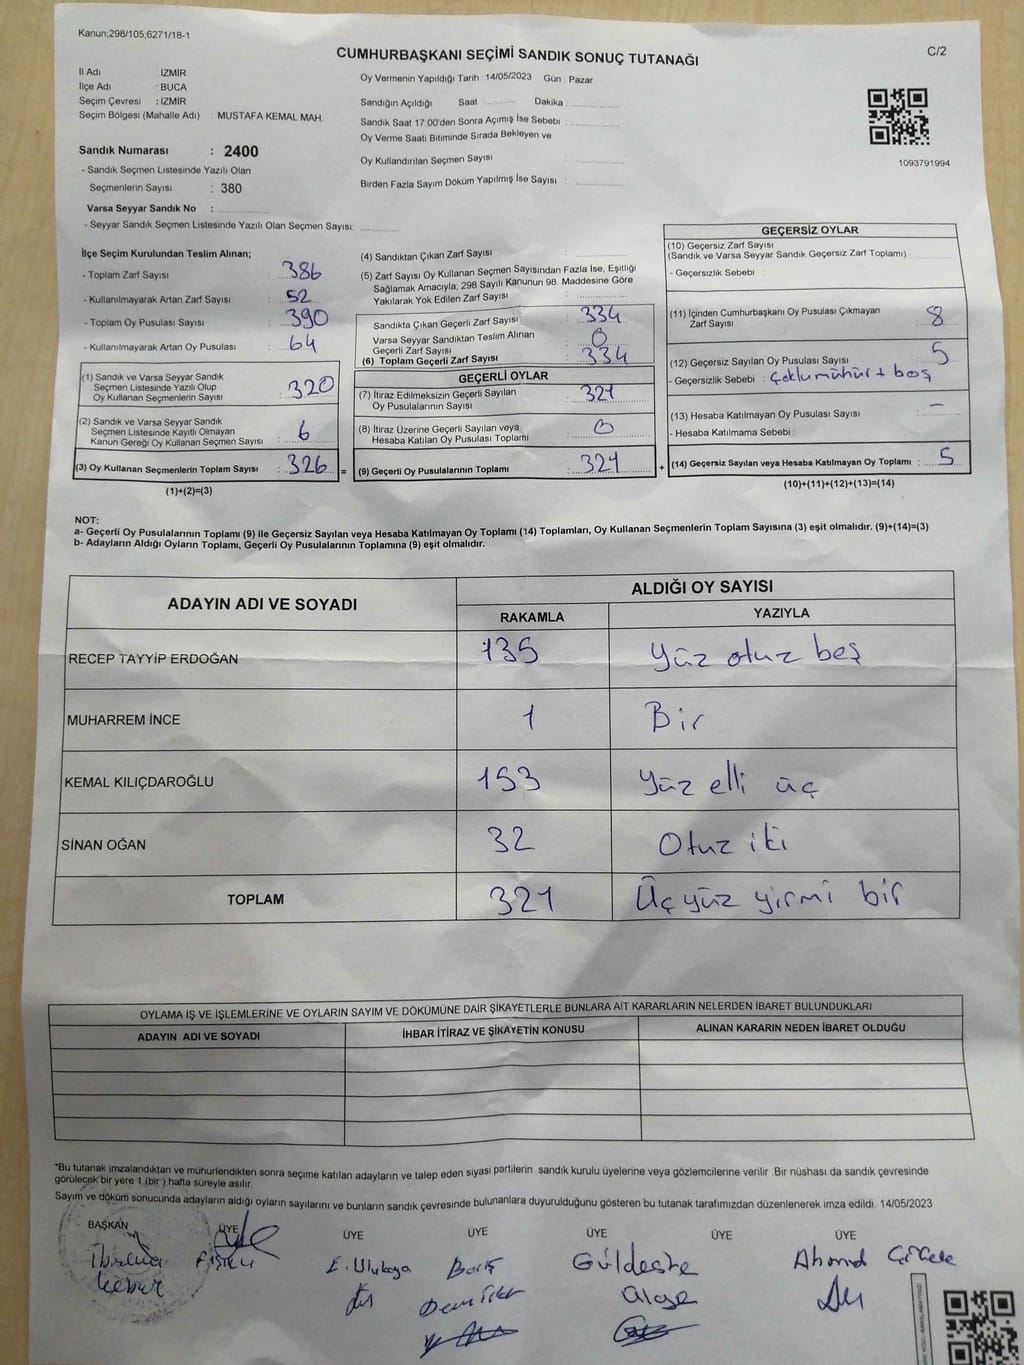 Kanun;298/105;6271/18-1
C/2
CUMHURBAŞKANI SEÇİMİ SANDIK SONUÇ TUTANAĞI
İl Adı : İZMİR
İlçe Adı : BUCA
Seçim Çevresi : İZMİR
Seçim Bölgesi (Mahalle Adı) : MUSTAFA KEMAL MAH.
Sandık Numarası : 2400
- Sandık Seçmen Listesinde Yazılı Olan
Seçmenlerin Sayısı : 380
Varsa Seyyar Sandık No :
- Seyyar Sandık Seçmen Listesinde Yazılı Olan Seçmen Sayısı:
Oy Vermenin Yapıldığı Tarih :14/05/2023 Gün : Pazar
Sandığın Açıldığı Saat : Dakika :
Sandık Saat 17.00'den Sonra Açımış İse Sebebi :
Oy Verme Saati Bitiminde Sırada Bekleyen ve
Oy Kullandırılan Seçmen Sayısı :
Birden Fazla Sayım Döküm Yapılmış İse Sayısı :
1093791994
İlçe Seçim Kurulundan Teslim Alınan;
- Toplam Zarf Sayısı : 386
- Kullanılmayarak Artan Zarf Sayısı : 52
- Toplam Oy Pusulası Sayısı : 390
- Kullanılmayarak Artan Oy Pusulası : 64
(1) Sandık ve Varsa Seyyar Sandık
Seçmen Listesinde Yazılı Olup
Oy Kullanan Seçmenlerin Sayısı : 320
(2) Sandık ve Varsa Seyyar Sandık
Seçmen Listesinde Kayıtlı Olmayan
Kanun Gereği Oy Kullanan Seçmen Sayısı : 6
(3) Oy Kullanan Seçmenlerin Toplam Sayısı : 326 =
(1)+(2)=(3)
(4) Sandıktan Çıkan Zarf Sayısı :
(5) Zarf Sayısı Oy Kullanan Seçmen Sayısından Fazla İse, Eşitliği
Sağlamak Amacıyla; 298 Sayılı Kanunun 98. Maddesine Göre
Yakılarak Yok Edilen Zarf Sayısı :
Sandıkta Çıkan Geçerli Zarf Sayısı : 334
Varsa Seyyar Sandıktan Teslim Alınan
Geçerli Zarf Sayısı : 0
(6) Toplam Geçerli Zarf Sayısı : 334
GEÇERLİ OYLAR
(7) İtiraz Edilmeksizin Geçerli Sayılan
Oy Pusulalarının Sayısı : 321
(8) İtiraz Üzerine Geçerli Sayılan veya
Hesaba Katılan Oy Pusulası Toplamı : 0
(9) Geçerli Oy Pusulalarının Toplamı : 321 +
GEÇERSİZ OYLAR
(10) Geçersiz Zarf Sayısı
(Sandık ve Varsa Seyyar Sandık Geçersiz Zarf Toplamı) :
- Geçersizlik Sebebi :
(11) İçinden Cumhurbaşkanı Oy Pusulası Çıkmayan
Zarf Sayısı : 8
(12) Geçersiz Sayılan Oy Pusulası Sayısı : 5
- Geçersizlik Sebebi : Çoklu mühür + boş
(13) Hesaba Katılmayan Oy Pusulası Sayısı : -
- Hesaba Katılmama Sebebi :
(14) Geçersiz Sayılan veya Hesaba Katılmayan Oy Toplamı : 5
(10)+(11)+(12)+(13)=(14)
NOT:
a- Geçerli Oy Pusulalarının Toplamı (9) ile Geçersiz Sayılan veya Hesaba Katılmayan Oy Toplamı (14) Toplamları, Oy Kullanan Seçmenlerin Toplam Sayısına (3) eşit olmalıdır. (9)+(14)=(3)
b- Adayların Aldığı Oyların Toplamı, Geçerli Oy Pusulalarının Toplamına (9) eşit olmalıdır.
ADAYIN ADI VE SOYADI ALDIĞI OY SAYISI
RAKAMLA YAZIYLA
RECEP TAYYİP ERDOĞAN 135 Yüz otuz beş
MUHARREM İNCE 1 Bir
KEMAL KILIÇDAROĞLU 153 Yüz elli üç
SİNAN OĞAN 32 Otuz iki
TOPLAM 321 Üç yüz yirmi bir
OYLAMA İŞ VE İŞLEMLERİNE VE OYLARIN SAYIM VE DÖKÜMÜNE DAİR ŞİKAYETLERLE BUNLARA AİT KARARLARIN NELERDEN İBARET BULUNDUKLARI
ADAYIN ADI VE SOYADI İHBAR İTİRAZ VE ŞİKAYETİN KONUSU ALINAN KARARIN NEDEN İBARET OLDUĞU
*Bu tutanak imzalandıktan ve mühürlendikten sonra seçime katılan adayların ve talep eden siyasi partilerin sandık kurulu üyelerine veya gözlemcilerine verilir .Bir nüshası da sandık çevresinde
görülecek bir yere 1 (bir ) hafta süreyle asılır.
Sayım ve döküm sonucunda adayların aldığı oyların sayılarını ve bunların sandık çevresinde bulunanlara duyurulduğunu gösteren bu tutanak tarafımızdan düzenlenerek imza edildi. 14/05/2023
BAŞKAN ÜYE ÜYE ÜYE ÜYE ÜYE ÜYE
E. Ulukaya Barış Güldeste Ahmet